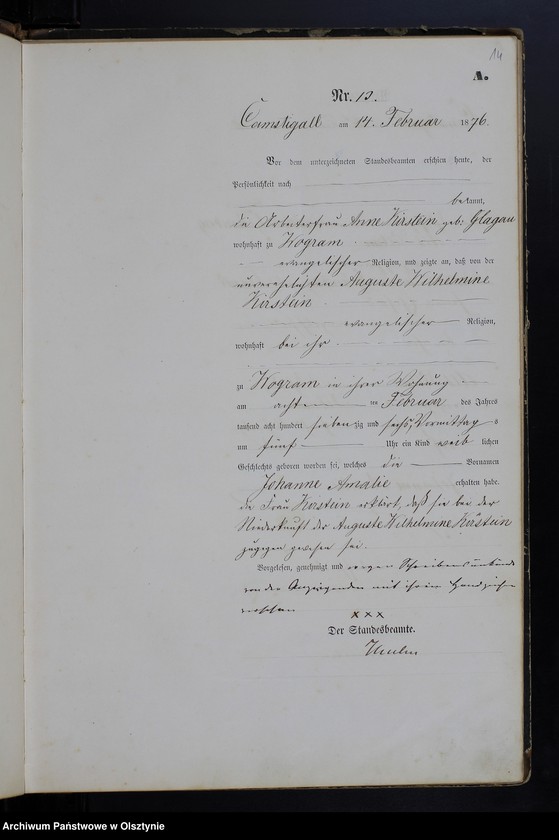 14
A.
Nr. 13.
Camstigall am 14. Februar 1876.
Vor dem unterzeichneten Standesbeamten erschien heute, der
Persönlichkeit nach
bekannt,
die Arbeiterfrau Anne Kirstein geb. Glagau
wohnhaft zu Kogram
evangelischer Religion, und zeigte an, daß von der
unverehelichten Auguste Wilhelmine
Kirstein
evangelischer Religion,
wohnhaft bei ihr
zu Kogram in ihrer Wohnung
am acht ten Februar des Jahres
tausend acht hundert siebenzig und sechs, Vormittags
um fünf Uhr ein Kind weib lichen
Geschlechts geboren worden sei, welches die Vornamen
Johanne Amalie erhalten habe.
die Frau Kirstein erklärt, daß sie bei der
Niederkunft der Auguste Wilhelmine Kirstein
zugegen gewesen sei.
Vorgelesen, genehmigt und wegen Schreibensunkunde
von der Anzeigenden mit ihrem Handzeichen
versehen
x x x
Der Standesbeamte.
Archiwum Państwowe w Olsztynie